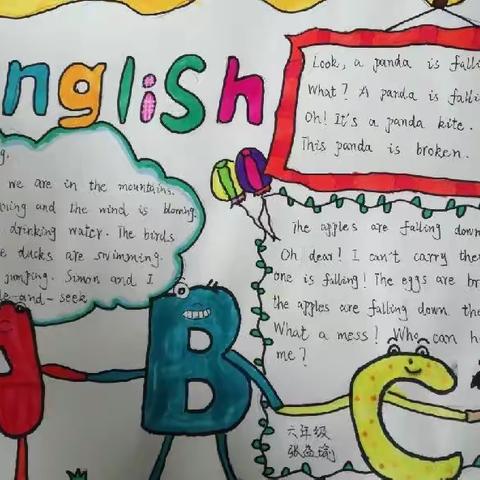 nglish
Look, a panda is falli
What? A panda is falli
Oh! It's a panda kite.
This panda is broken.
g.
we are in the mountains.
and the wind is blowing.
drinking water. The birds
ducks are swimming.
jumping. Simon and I
-and-seek
The apples are falling down
Oh dear! I can't carry the
one is falling! The eggs are br
the apples are falling down the
What a mess! Who can h
me?
B
C
六年级